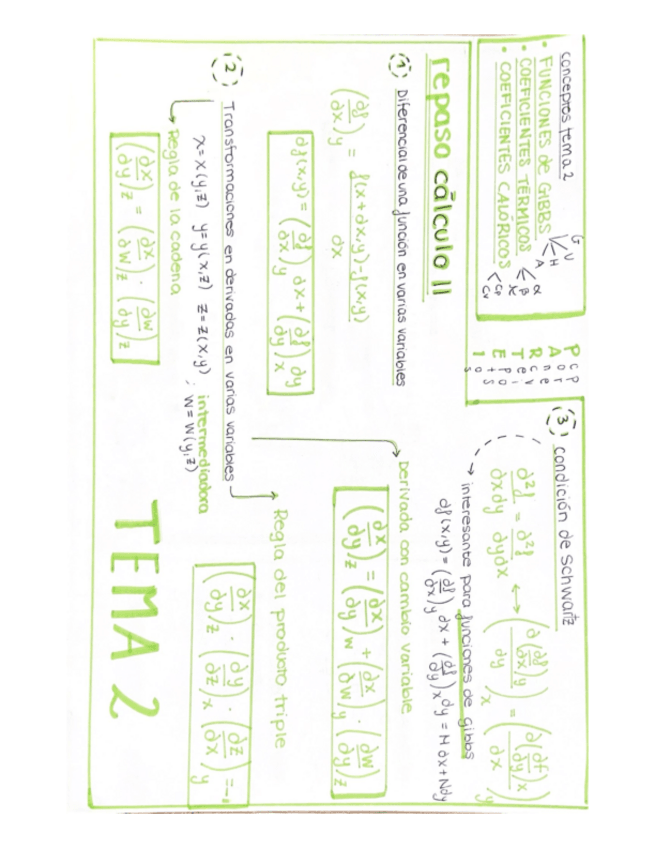 conceptos tema 2
• FUNCIONES de GIBBS G U H A
• COEFICIENTES TÉRMICOS α β
• COEFICIENTES CALÓRICOS Cp Cv
repaso cálculo II
① Diferencial de una función en varias variables
(∂f/∂x)y = f(x+∂x,y)-f(x,y) / ∂x
df(x,y) = (∂f/∂x)y ∂x + (∂f/∂y)x ∂y
② Transformaciones en derivadas en varias variables
x = x(y,z) y = y(x,z) z = z(x,y) ; intermediadora w = w(y,z)
Regla de la cadena
(∂x/∂y)z = (∂x/∂w)z · (∂w/∂y)z
③ condición de Schwartz
∂²f/∂x∂y = ∂²f/∂y∂x ↔ (∂(∂f/∂x)y/∂y)x = (∂(∂f/∂y)x/∂x)y
interesante para funciones de Gibbs
df(x,y) = (∂f/∂x)y ∂x + (∂f/∂y)x dy = M∂x + Ndy
Derivada con cambio variable
(∂x/∂y)z = (∂x/∂y)w + (∂x/∂w)y · (∂w/∂y)z
Regla del producto triple
(∂x/∂y)z · (∂y/∂z)x · (∂z/∂x)y = -1
TEMA 2